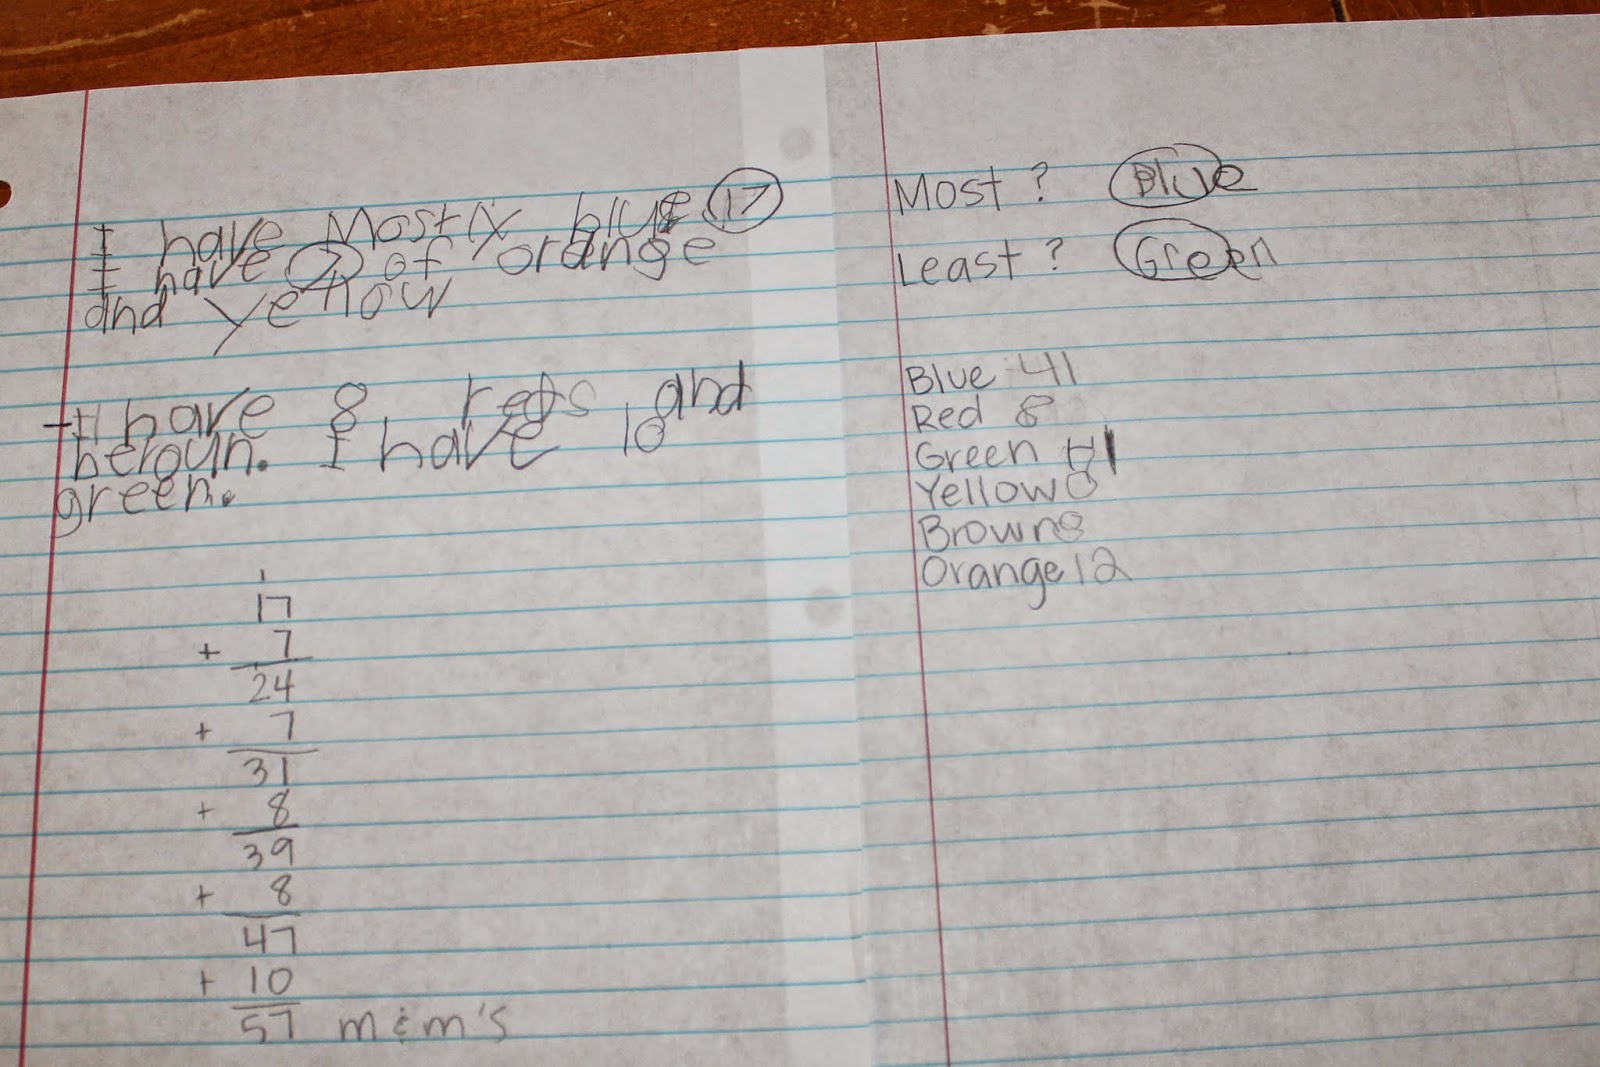 I have Mostly blue 17
I have 7 of orange
and yellow
I have 8 reds and
beroun. I have 10
green.
1
17
+ 7
24
+ 7
31
+ 8
39
+ 8
47
+ 10
57 m&m's
Most? Blue
Least? Green
Blue 41
Red 8
Green
Yellow
Brown 8
Orange 12